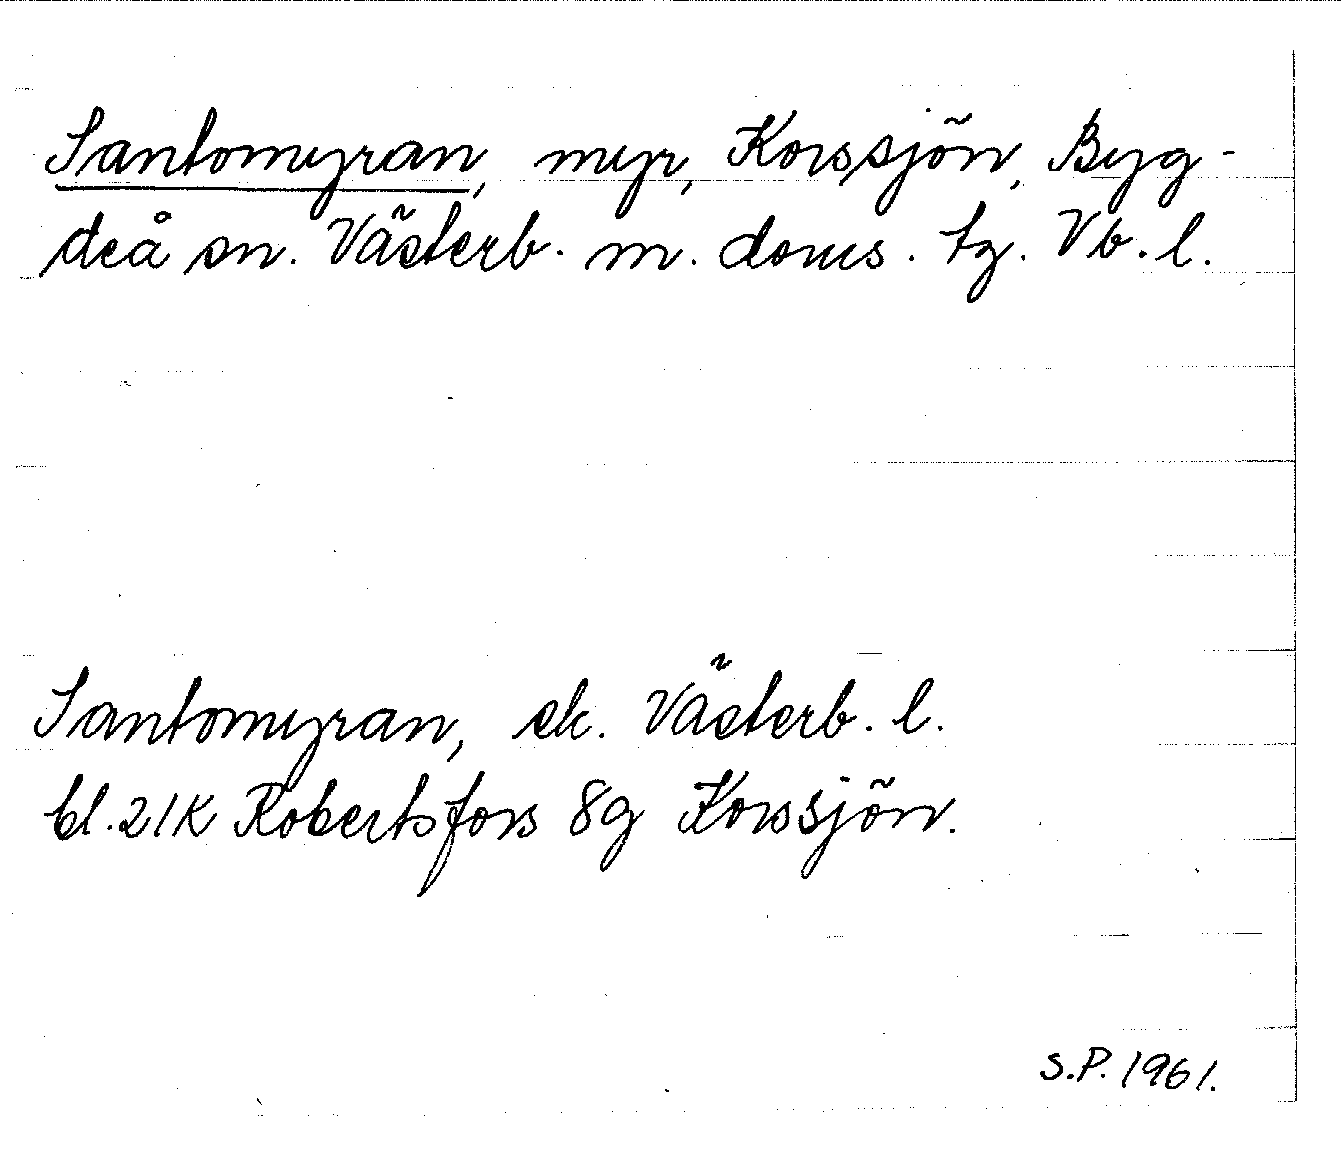 Santomyran, myr, Korssjön, Byg-
deå sn. Västerb. m. doms. tg. Vb. l.
Santomyran, ek. Västerb. l.
bl. 21K Robertsfors 8g Korssjön.
S.P. 1961.